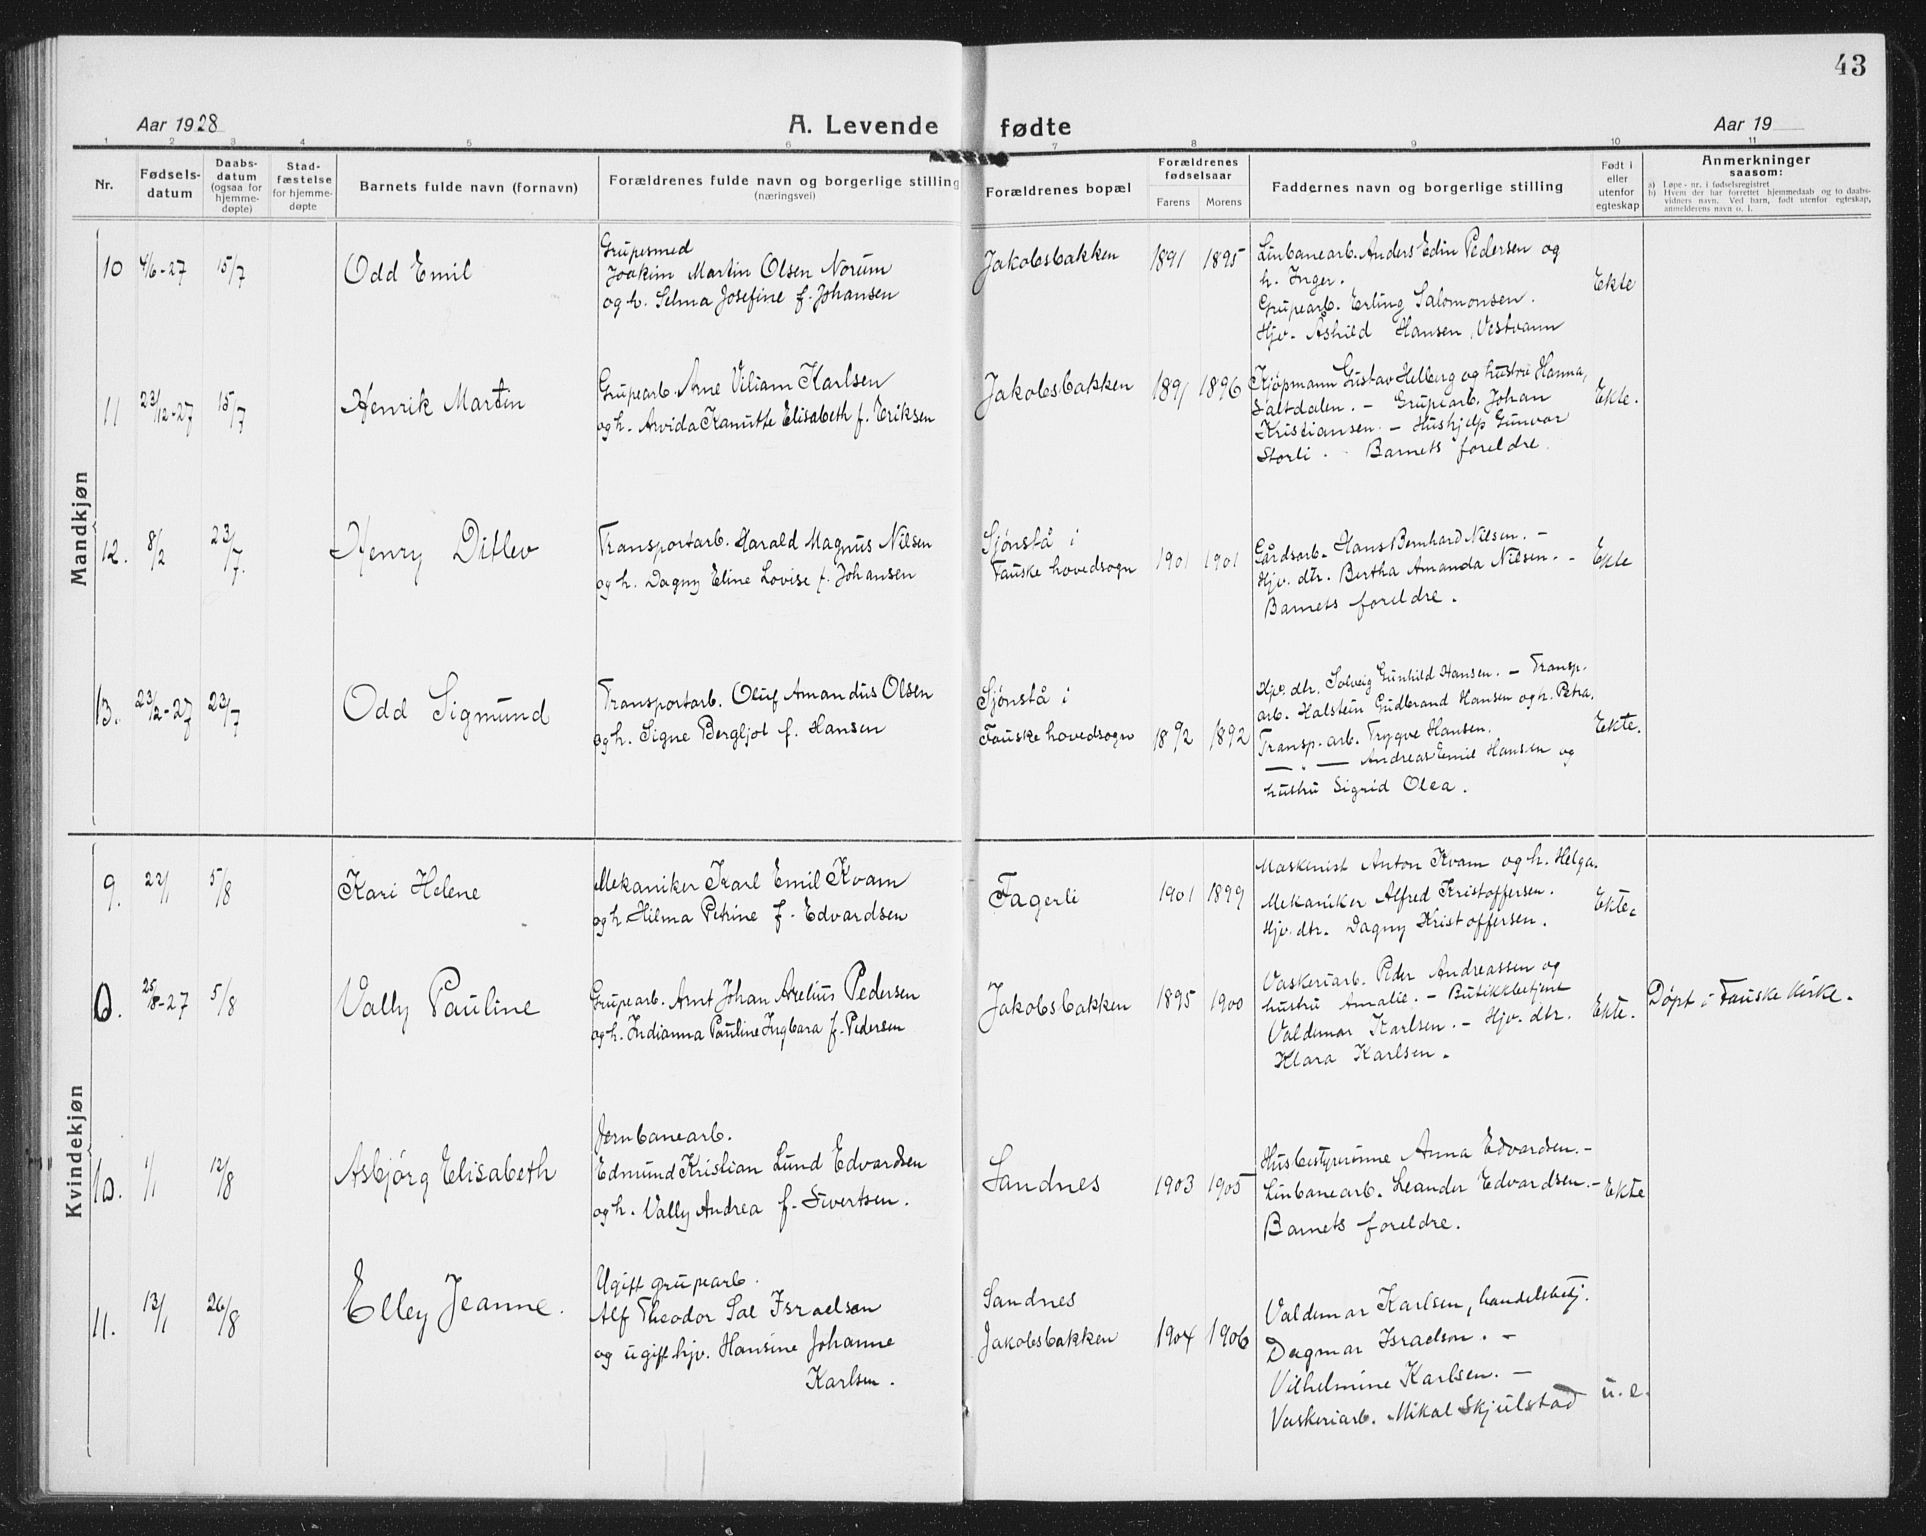 43
Aar 1928
A. Levende fødte
Aar 19
1 2 3 4 5 6 7 8 9 10 11
Nr.
Fødsels-
datum
Daabs-
datum
(ogsaa for
hjemme-
døpte)
Stad-
fæstelse
for hjemme-
døpte
Barnets fulde navn (fornavn)
Forældrenes fulde navn og borgerlige stilling
(næringsvei)
Forældrenes bopæl
Forældrenes
fødselsaar
Farens Morens
Faddernes navn og borgerlige stilling
Født i
eller
utenfor
egteskap
Anmerkninger
saasom:
a) Løpe-nr. i fødselsregistret
b) Hvem der har forrettet hjemmedaab og to daabs-
vidners navn. Ved barn, født utenfor egteskap,
anmelderens navn o. l.
Mandkjøn
10 4/6-27 15/7
Odd Emil
Grupesmed
Joakim Martin Olsen Norum
og h. Selma Josefine f. Johansen
Jakobsbakken
1891 1895
Linbanearb. Anders Edin Pedersen og
h. Inger.
Grupearb. Erling Salomonsen.
Hjv. Åshild Hansen, Vestvann
Ekte
11 23/12-27 15/7
Henrik Martin
Grupearb. Arne Viliam Karlsen
og h. Arvida Kanutte Elisabeth f. Eriksen
Jakobsbakken
1891 1896
Kjøpmann Gustav Helberg og hustru Hanna,
Saltdalen. - Grupearb. Johan
Kristiansen. - Hushjelp Gunvor
Storli. - Barnets foreldre.
Ekte.
12. 8/2 23/7.
Henry Ditlev
Transportarb. Harald Magnus Nilsen
og h. Dagny Eline Lovise f. Johansen
Sjønstå i
Fauske hovedsogn
1901 1901
Gårdsarb. Hans Bernhard Nilsen. -
Hjv. dtr. Bertha Amanda Nilsen. -
Barnets foreldre.
Ekte
13. 23/2-27 23/7
Odd Sigmund
Transportarb. Oluf Amandus Olsen
og h. Signe Bergljot f. Hansen
Sjønstå i
Fauske hovedsogn
1892 1892
Hjv. dtr. Solveig Gunhild Hansen. - Transp.
arb. Halstein Gudbrand Hansen og h. Petra.
Transp. arb. Trygve Hansen.
— " — Andreas Emil Hansen og
hustru Sigrid Olea.
Ekte.
Kvindekjøn
9. 22/1 5/8
Kari Helene
Mekaniker Karl Emil Kvam
og h. Hilma Petrine f. Edvardsen
Fagerli
1901 1899
Maskinist Anton Kvam og h. Helga.
Mekaniker Alfred Kristoffersen.
Hjv. dtr. Dagny Kristoffersen.
Ekte.
0. 25/8-27 5/8
Vally Pauline
Grupearb. Arnt Johan Arelius Pedersen
og h. Indianna Pauline Ingbara f. Pedersen
Jakobsbakken
1895 1900
Vaskeriarb. Peder Andreassen og
hustru Amalie. - Butikkbetjent
Valdemar Karlsen. - Hjv. dtr.
Klara Karlsen.
Ekte.
Døpt i Fauske kirke.
10. 1/1 12/8
Asbjörg Elisabeth
Jernbanearb.
Edmund Kristian Lund Edvardsen
og h. Vally Andrea f. Sivertsen.
Sandnes
1903 1905
Husbestyrerinne Anna Edvardsen. -
Linbanearb. Leander Edvardsen. -
Barnets foreldre.
Ekte
11. 13/1 26/8
Elley Jeanne.
Ugift grupearb.
Alf Theodor Sal Israelsen
og ugift hjv. Hansine Johanne
Karlsen.
Sandnes
Jakobsbakken
1904 1906
Valdemar Karlsen, handelsbetj.
Dagmar Israelson. -
Vilhelmine Karlsen. -
Vaskeriarb. Mikal Skjulstad
u. e.